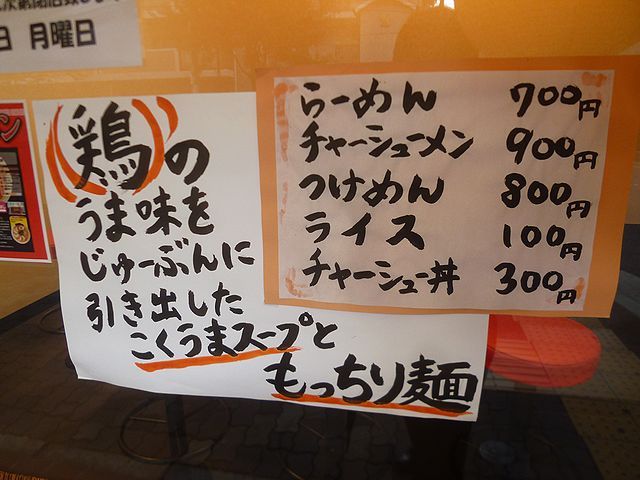 日 月曜日
らーめん 700円
チャーシューメン 900円
つけめん 800円
ライス 100円
チャーシュー丼 300円
鶏の
うま味を
じゅーぶんに
引き出した
こくうまスープと
もっちり麺